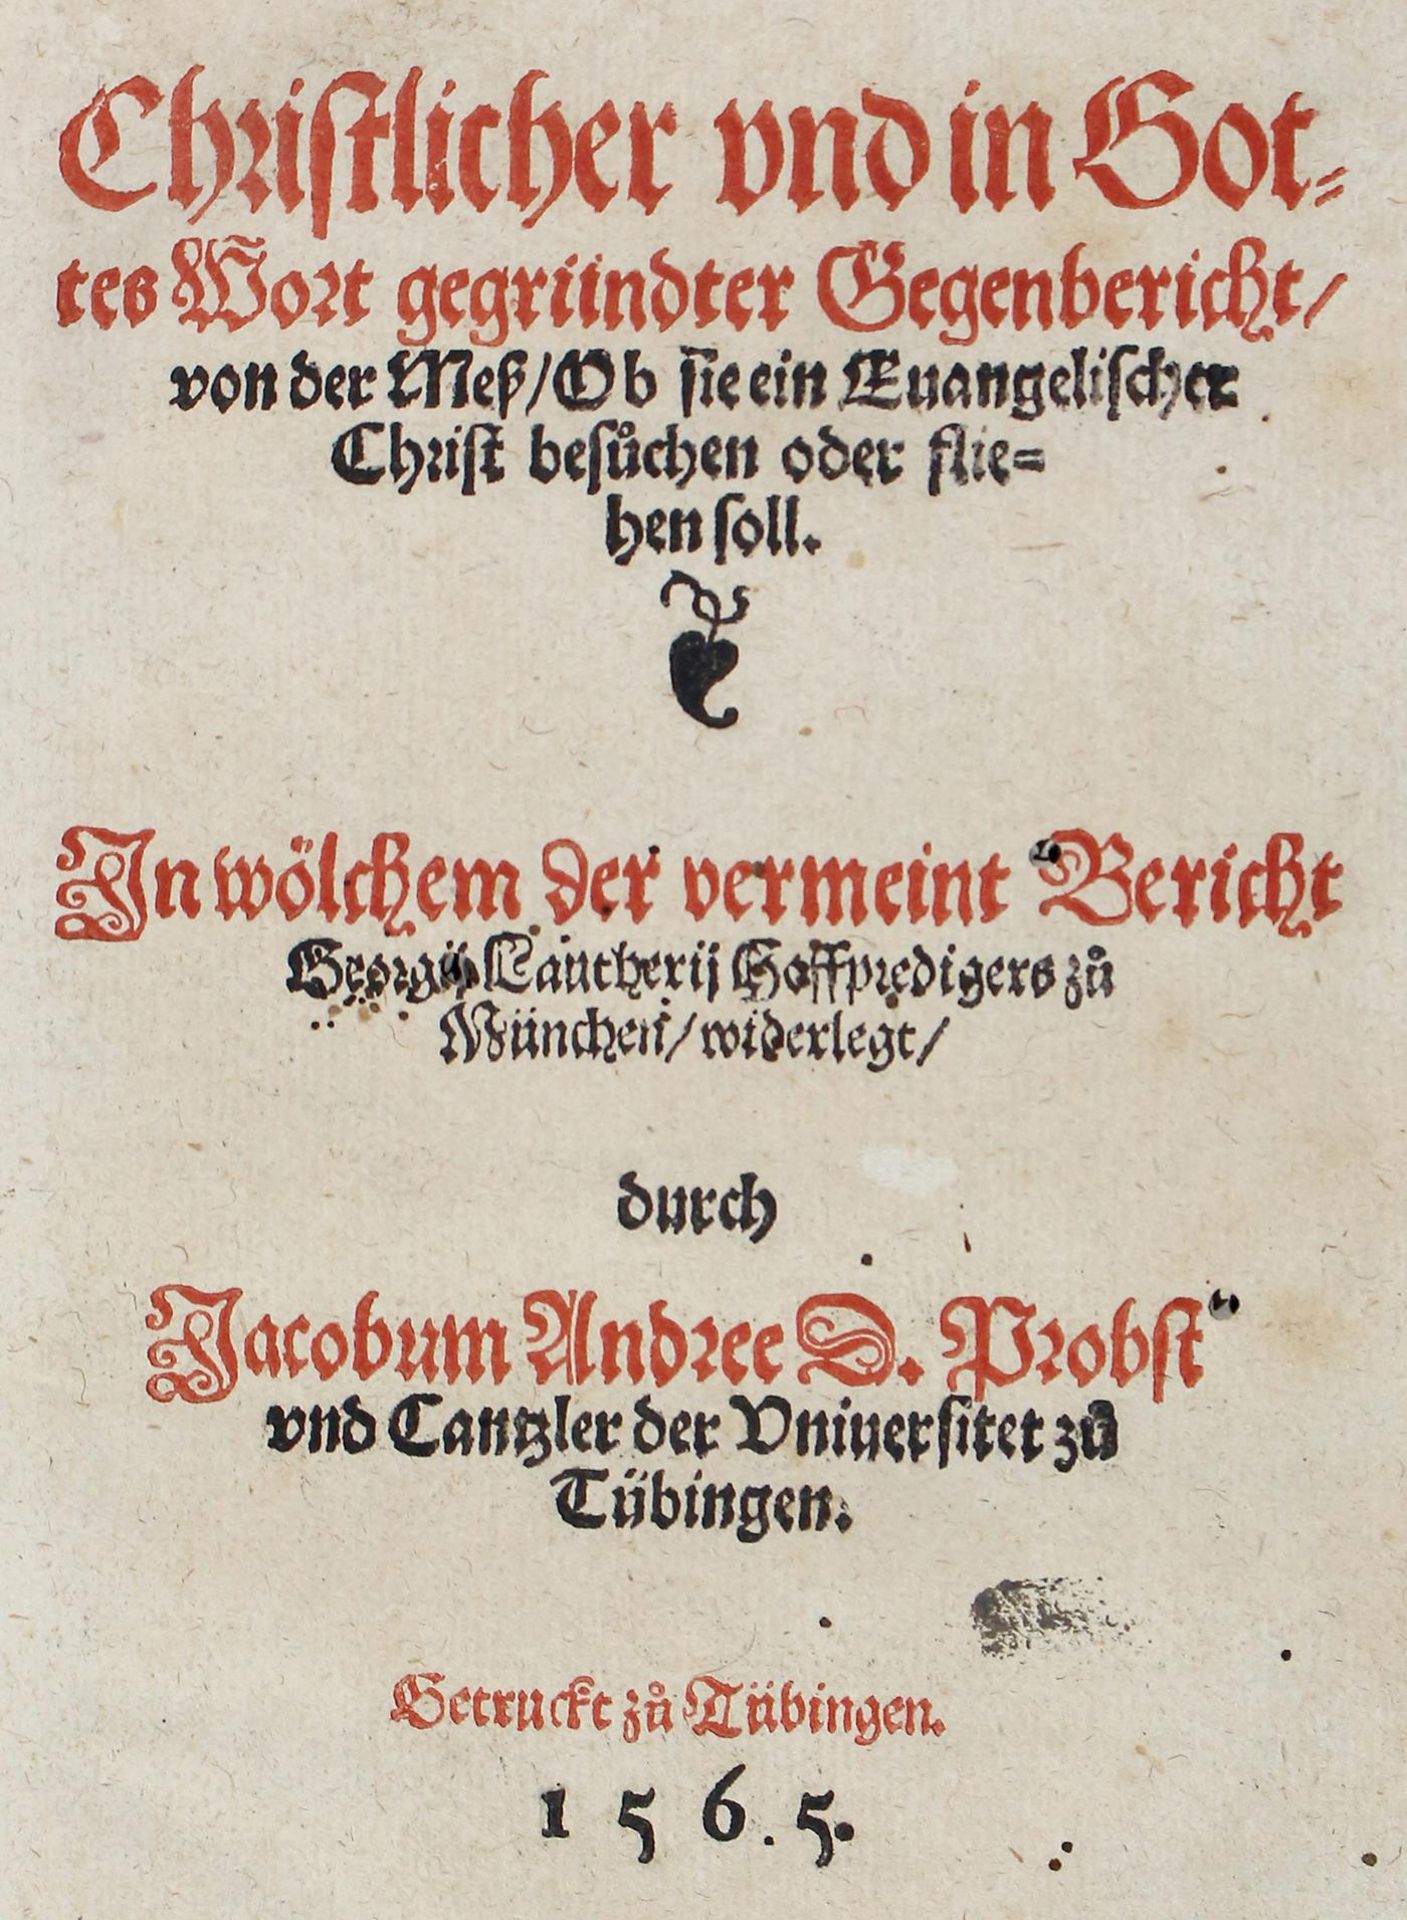 Chriſtlicher vnd in Got⸗
tes Wort gegründter Gegenbericht/
von der Meß/Ob ſie ein Euangeliſcher
Chriſt beſůchen oder flie⸗
hen ſoll.
In wölchem der vermeint Bericht
Georgij Lautherij Hoffpredigers zů
München/widerlegt/
durch
Jacobum Andree D. Probſt
vnd Cantzler der Vniuerſitet zů
Tübingen.
Getruckt zů Tübingen.
1 5 6 5.